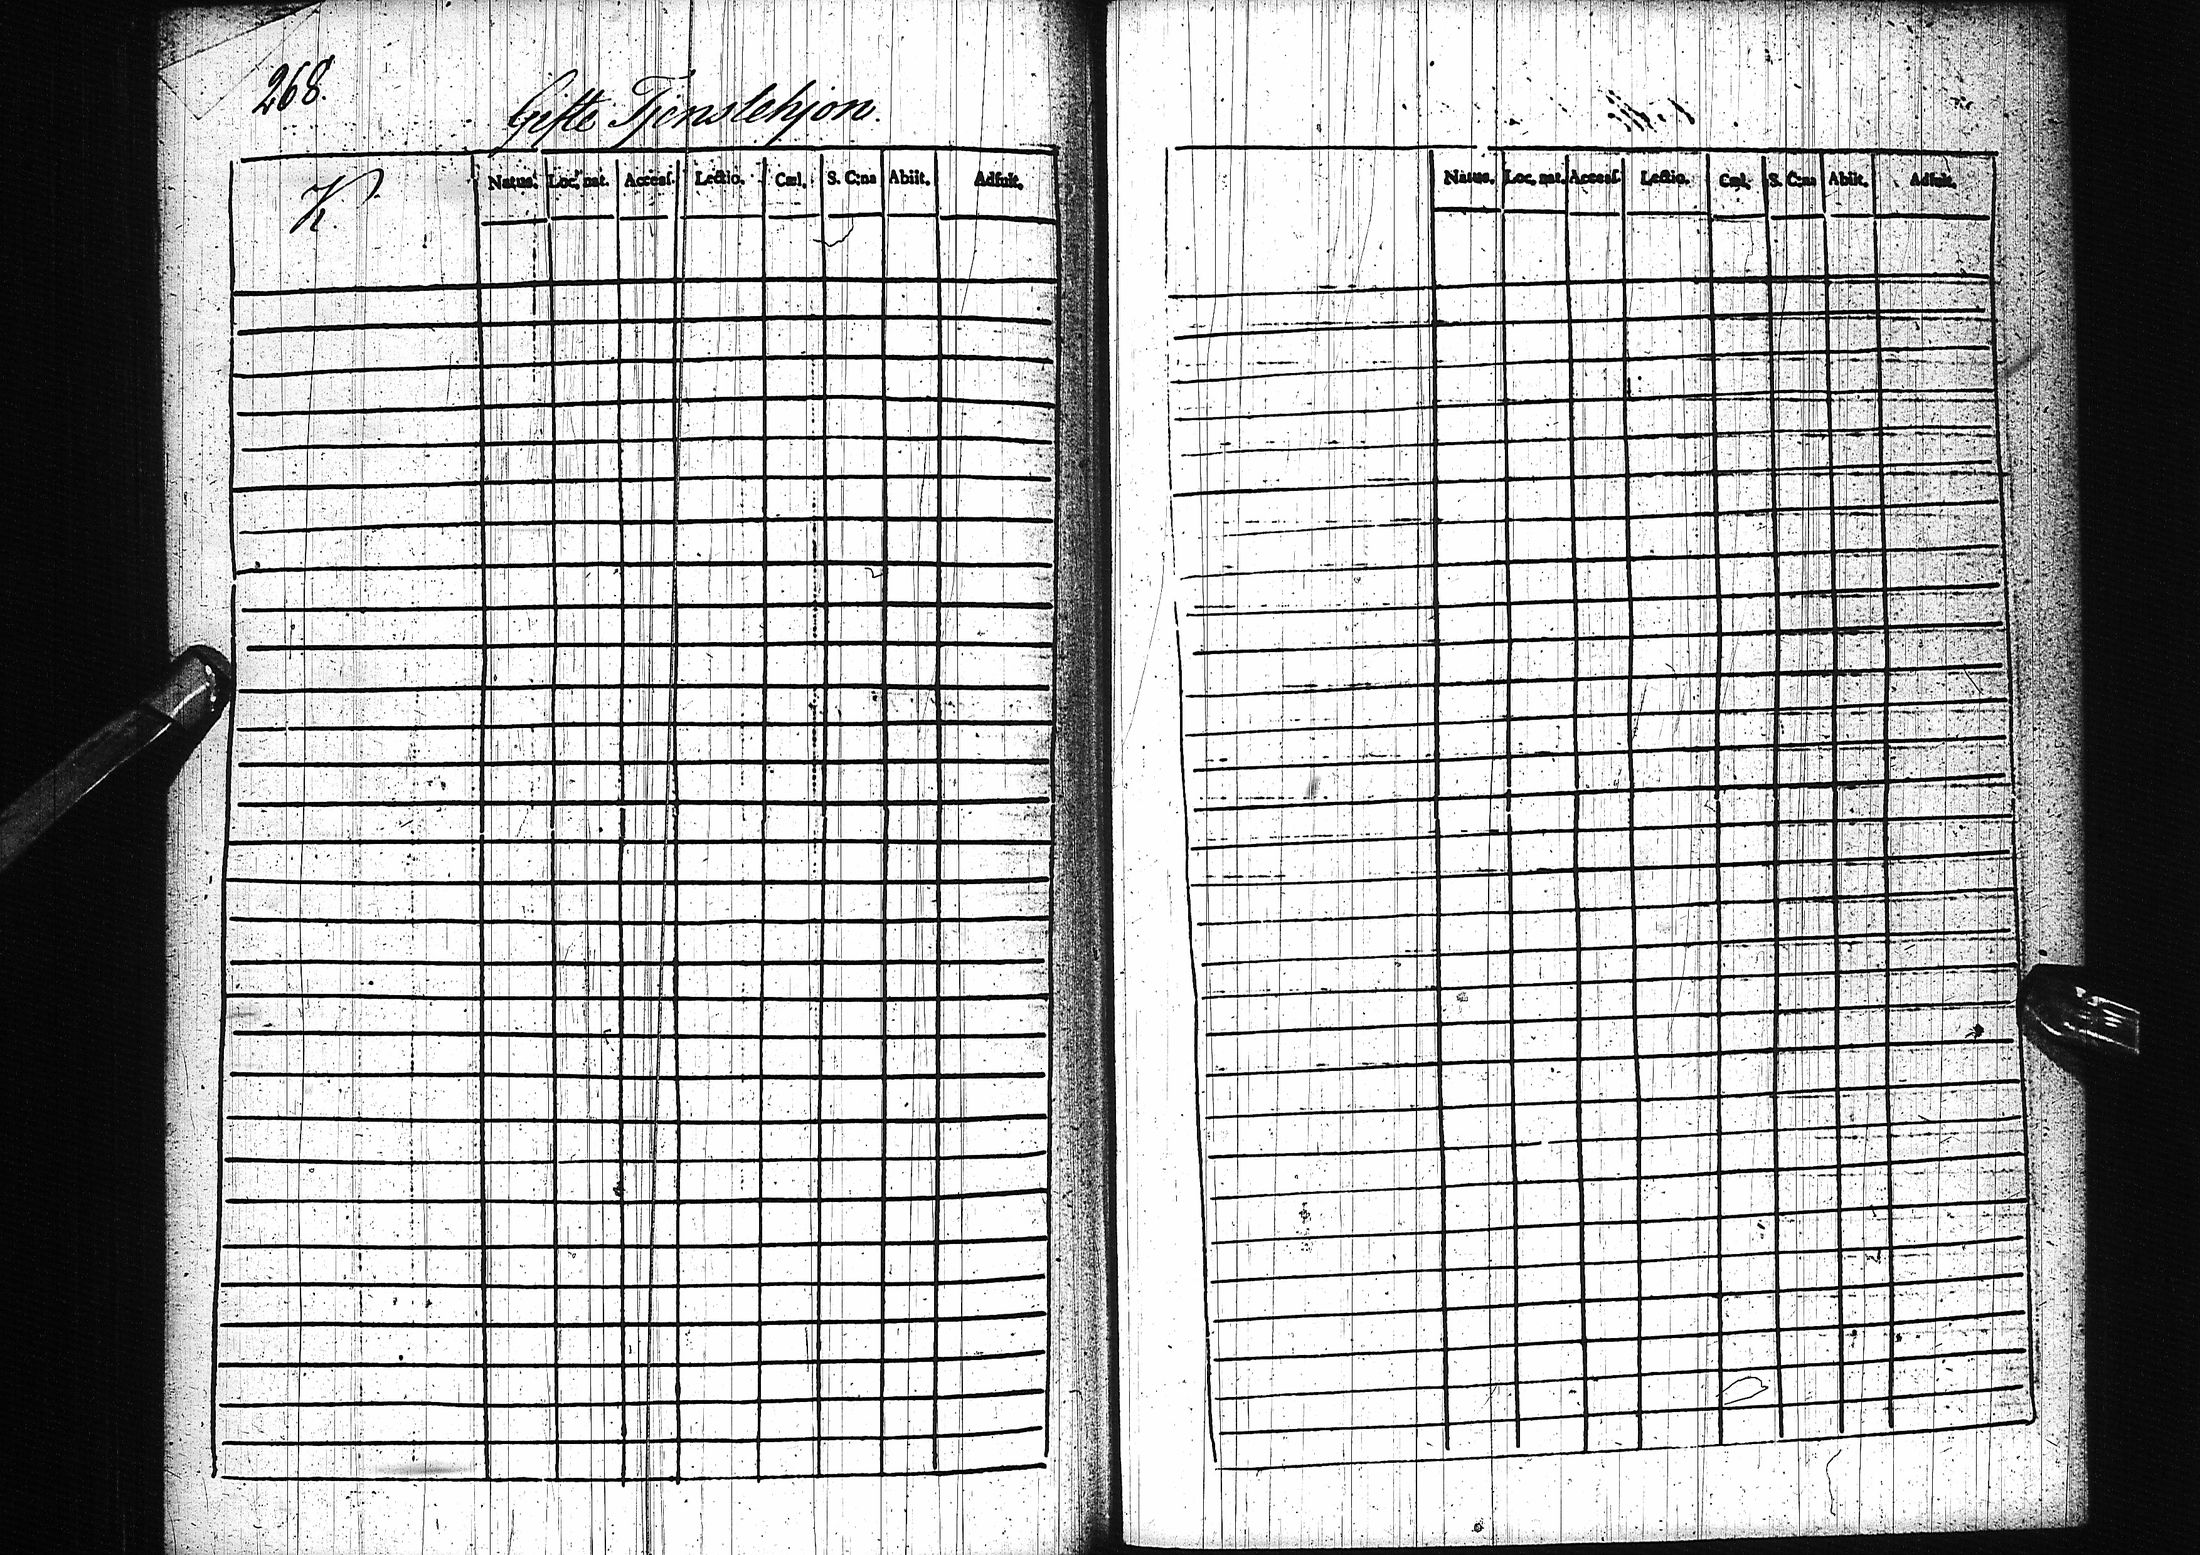 268.
Gifte Tjenstehjon.
K.
Natus. Loc. nat. Accesſ. Lectio. Cæl. S. C:na Abiit. Adfuit.
Natus. Loc. nat. Accesſ. Lectio. Cæl. S. C:na Abiit. Adfuit.